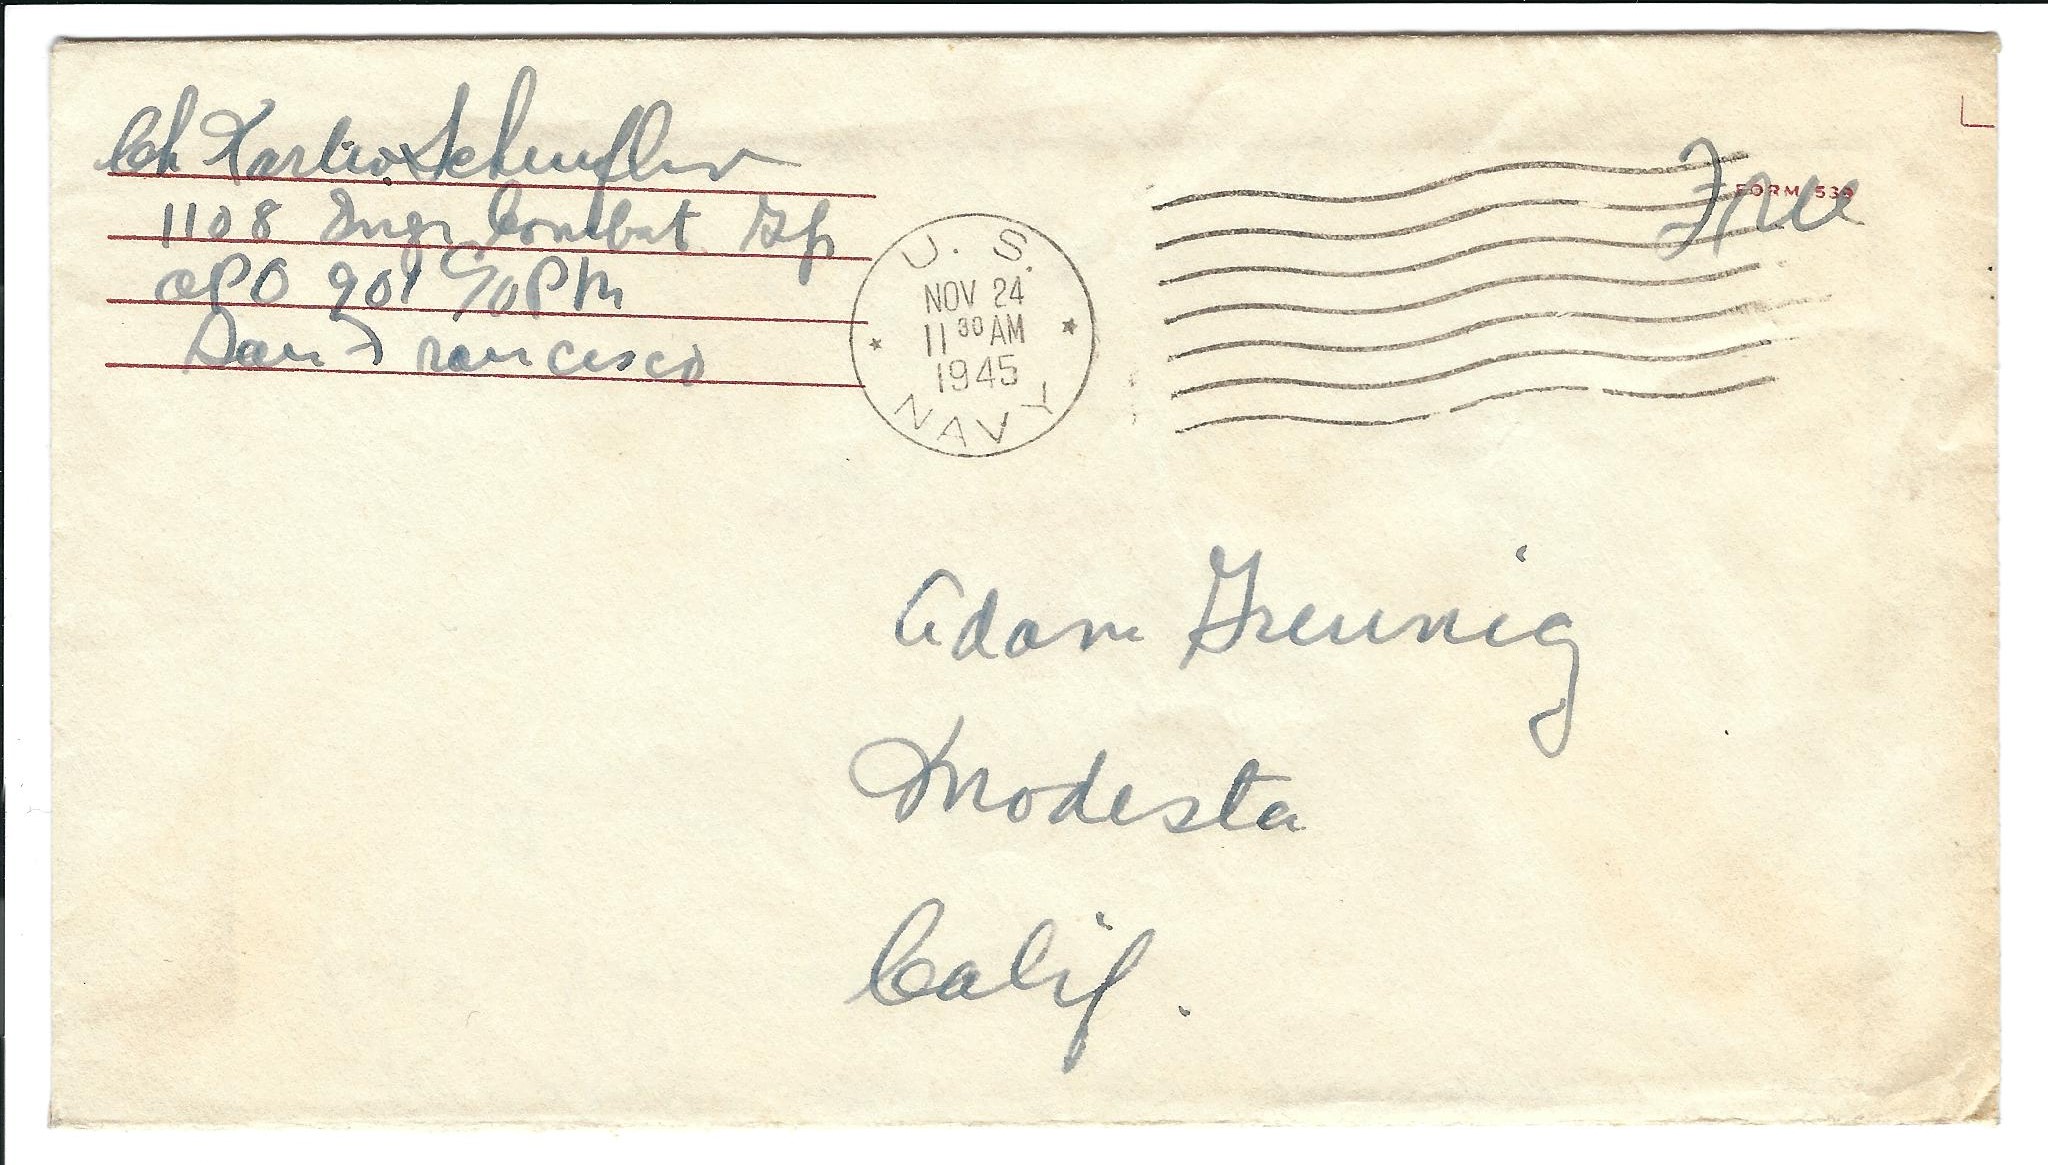 Ch Karl W. Scheufler
1108 Engr. Combat Gp
APO 901 c/o PM
San Francisco
U. S.
NOV 24
11 30 AM
1945
NAVY
Free
FORM 539
Adam Greunig
Modesta
Calif.